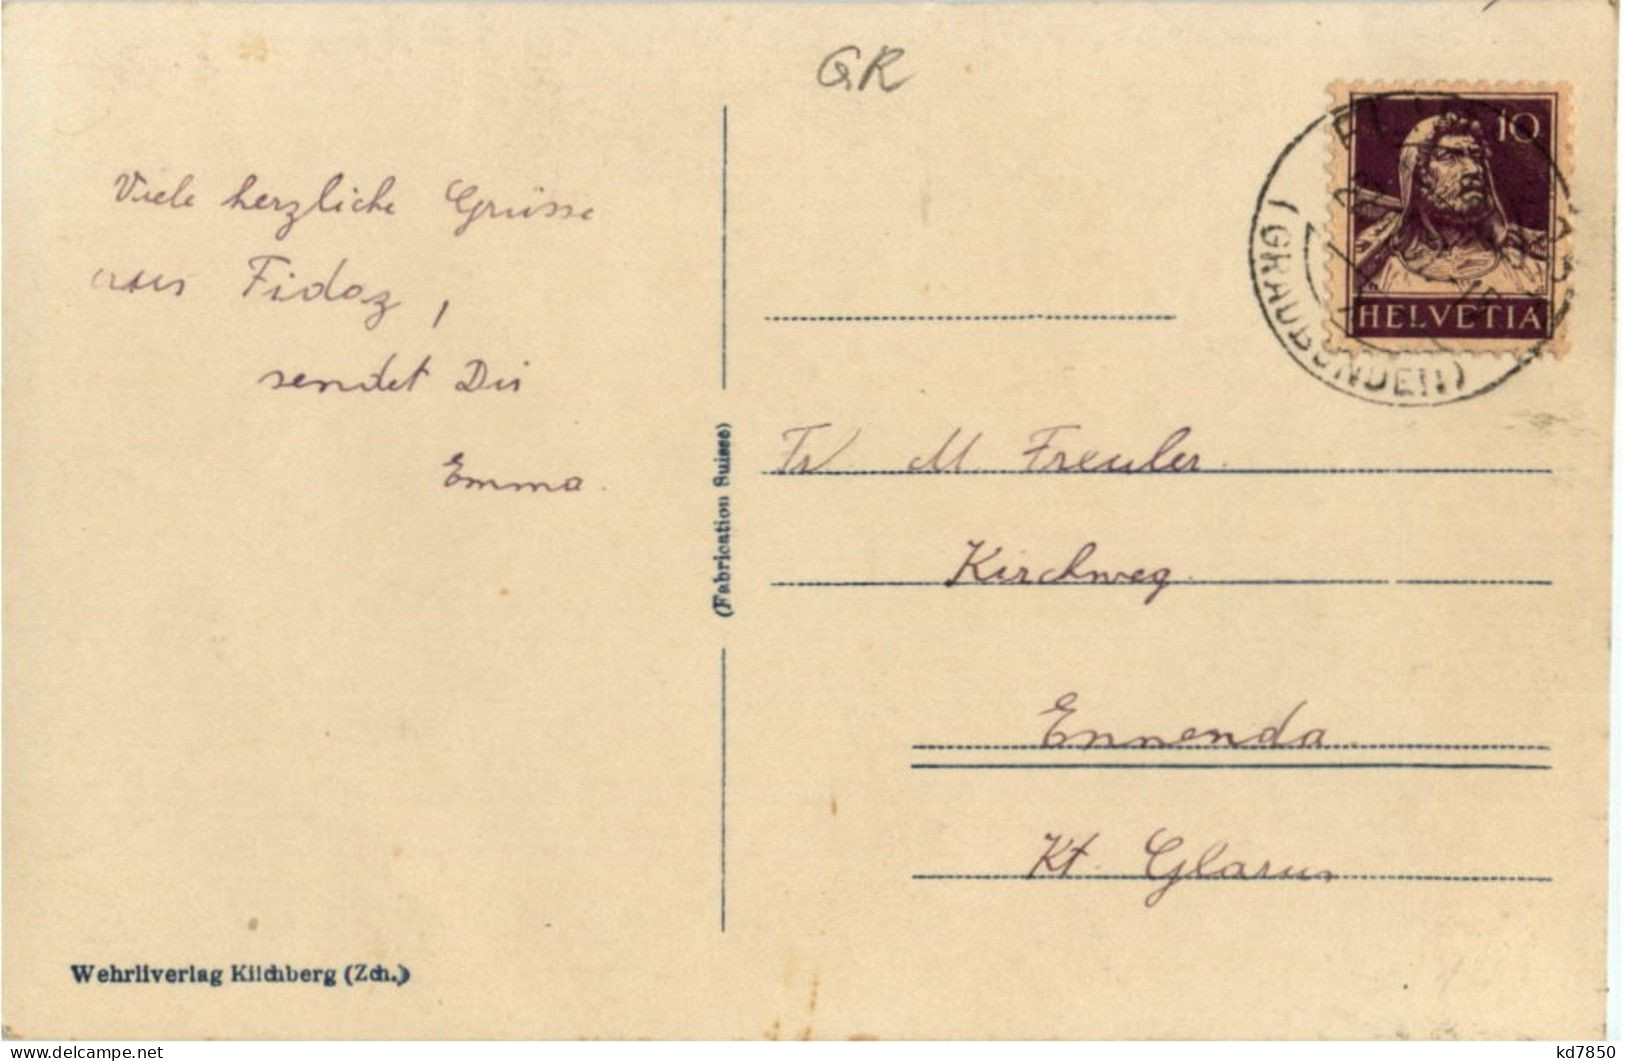 GR
10
HELVETIA
(GRAUBÜNDEN)
Viele herzliche Grüsse
aus Fidaz,
sendet Dir
Emma.
(Fabrication Suisse)
Fr M Freuler.
Kirchweg.
Ennenda
Kt. Glarus
Wehrliverlag Kilchberg (Zch.)
kd7850